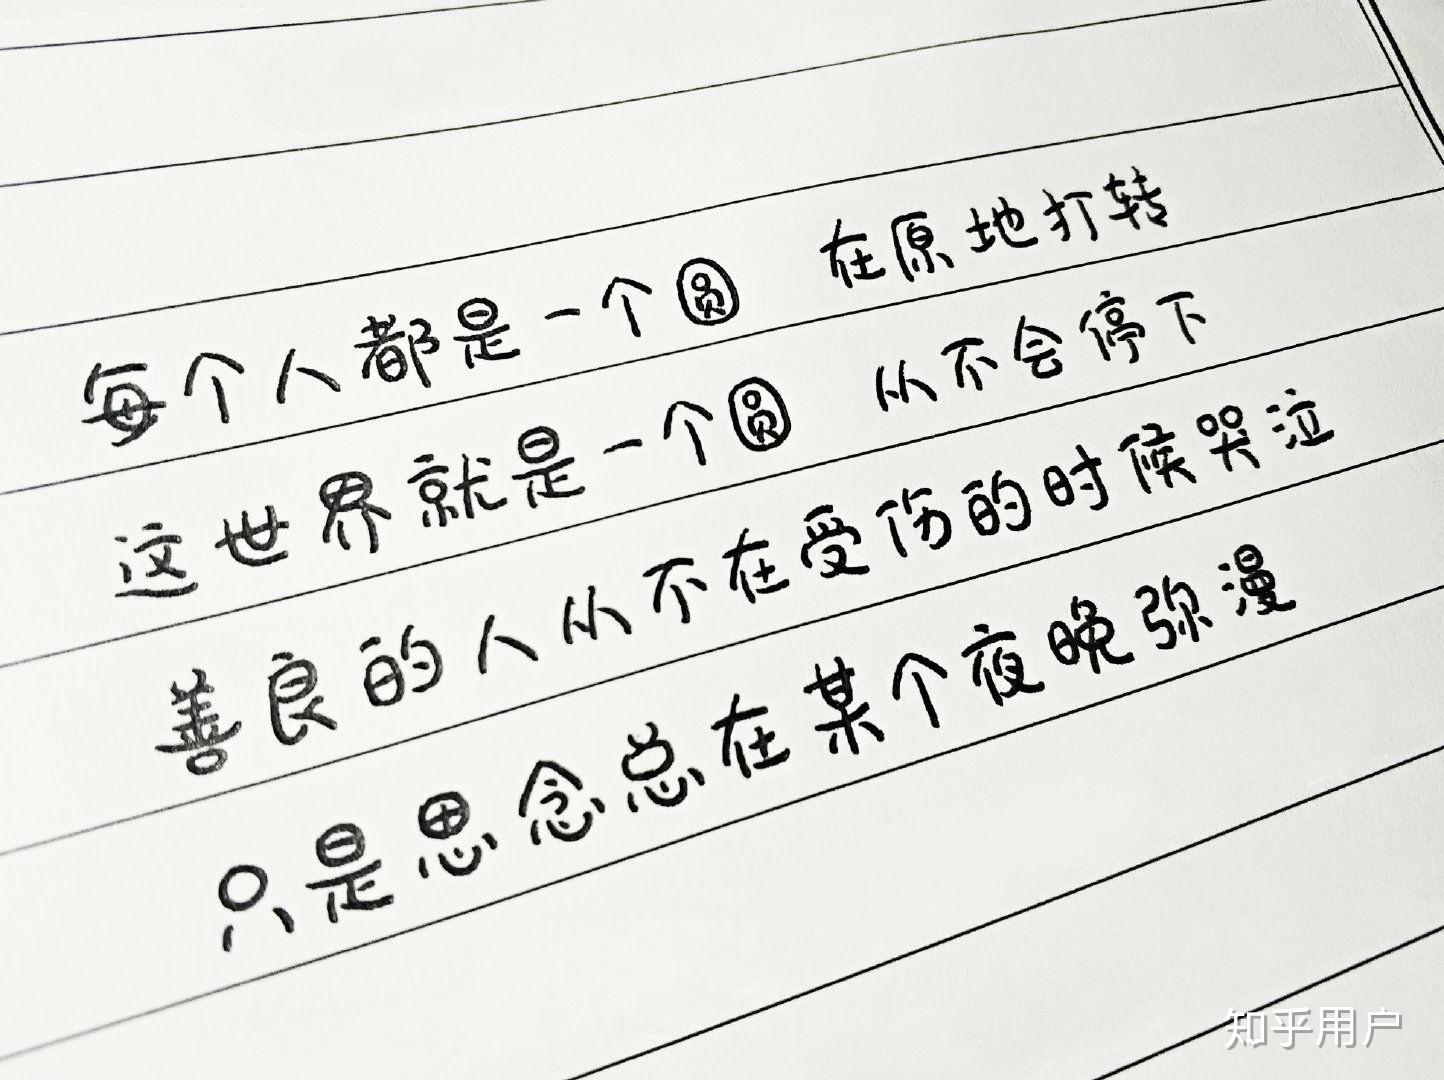 每个人都是一个圆 在原地打转
这世界就是一个圆 从不会停下
善良的人从不在受伤的时候哭泣
只是思念总在某个夜晚弥漫
知乎用户